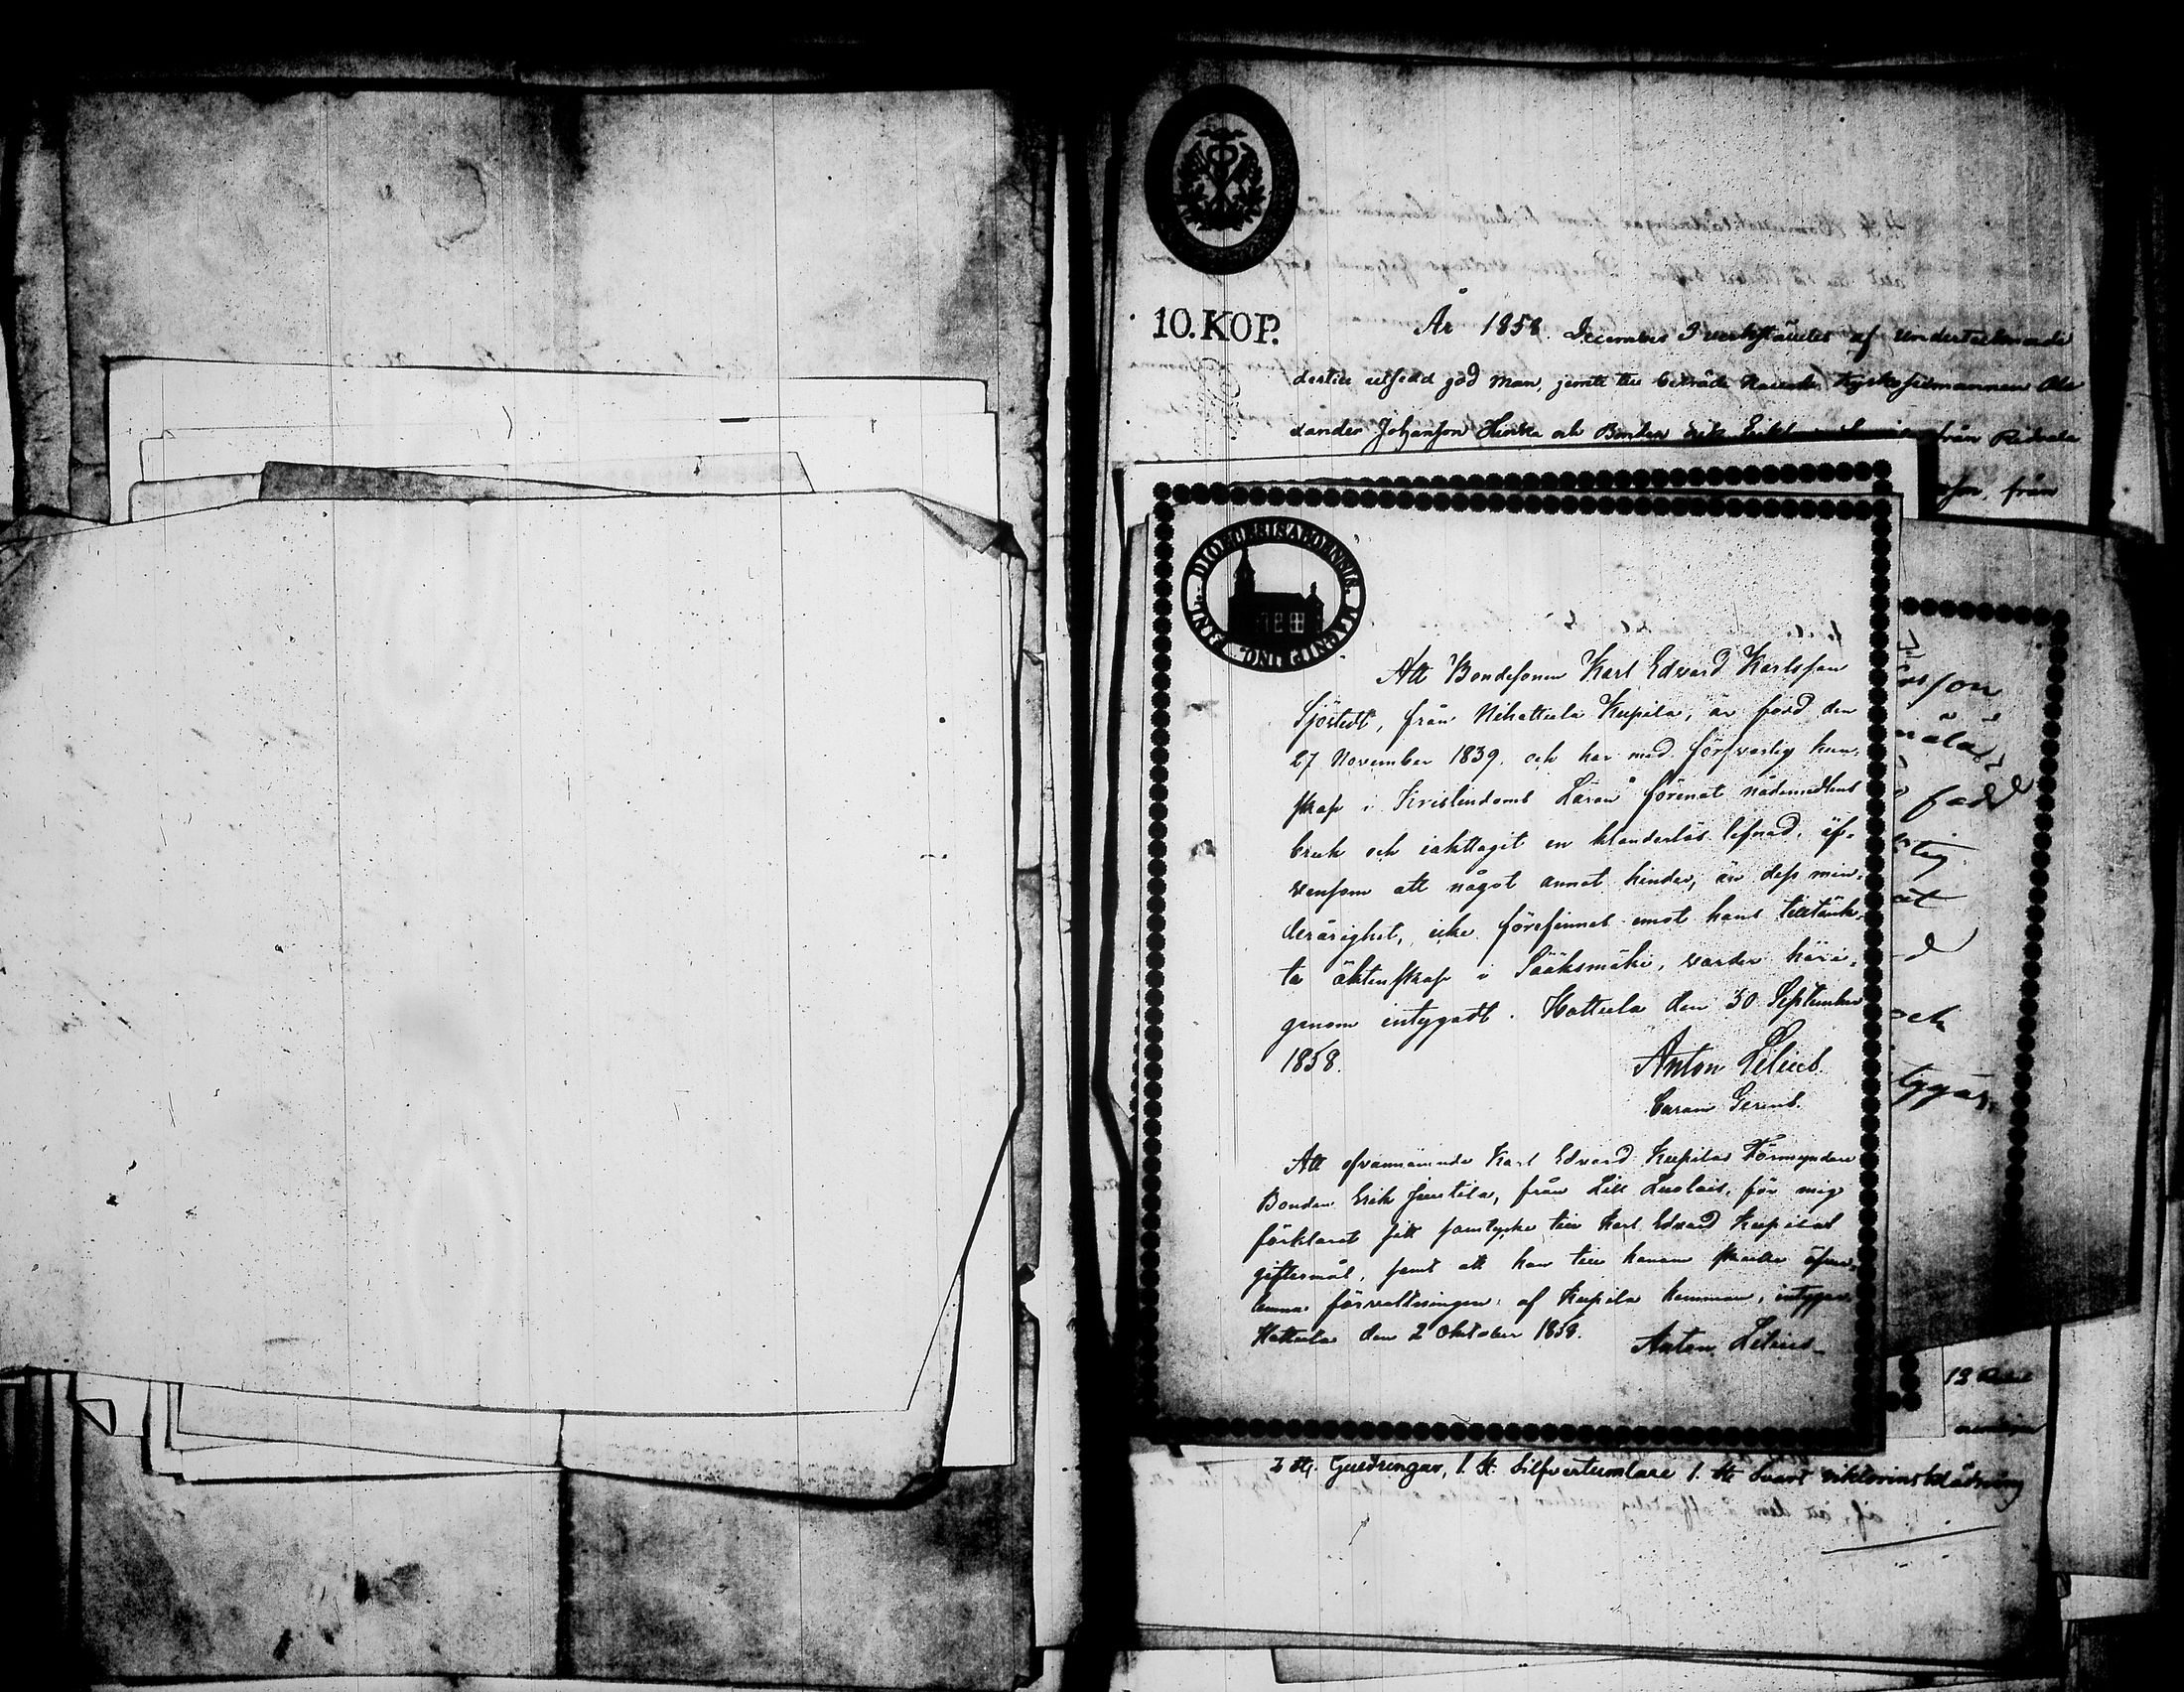 10. KOP.
År 1858. December 9 verkstäldes af undertecknade
dertill utsedd god man, jemte till biträde kallade Kyrkosexmannen Ale
xander Johansson Hinka och Bonden Erik från Ridvala
son, från
DIOECESIS ABOENSIS MAGNI PRINC. FINL.
Att Bondesonen Karl Edvard Karlsson
Sjöstedt, från Nihattula Kupila, är född den
27 November 1839. och har med försvarlig kun-
skap i Kristendoms Läran förenat nådemedlens
bruk och iakttagit en klanderlös lefnad, äf-
vensom att något annat hinder, än dess min-
derårighet, icke förefinnes emot hans tilltänk-
ta äktenskap i Sääksmäki, varder häri-
genom intygadt. Hattula den 30 September
1858. Anton Lilius.
Curam Gerens.
Att ofvannämnde Karl Edvard Kupilas Förmyndare
Bonden Erik Juutila, från Lill Luolais, för mig
förklarat sitt samtycke till Karl Edvard Kupilas
giftermål, samt att han till honom skulle öfver-
lemna förvaltningen af Kupila hemman, intygar.
Hattula den 2 Oktober 1858. Anton Lilius
son
född
lig
at
d
och
tygar,
12
2 st. Guldringar, 1. st. Silfvertumlare 1. st. Svart viktorinsklädning